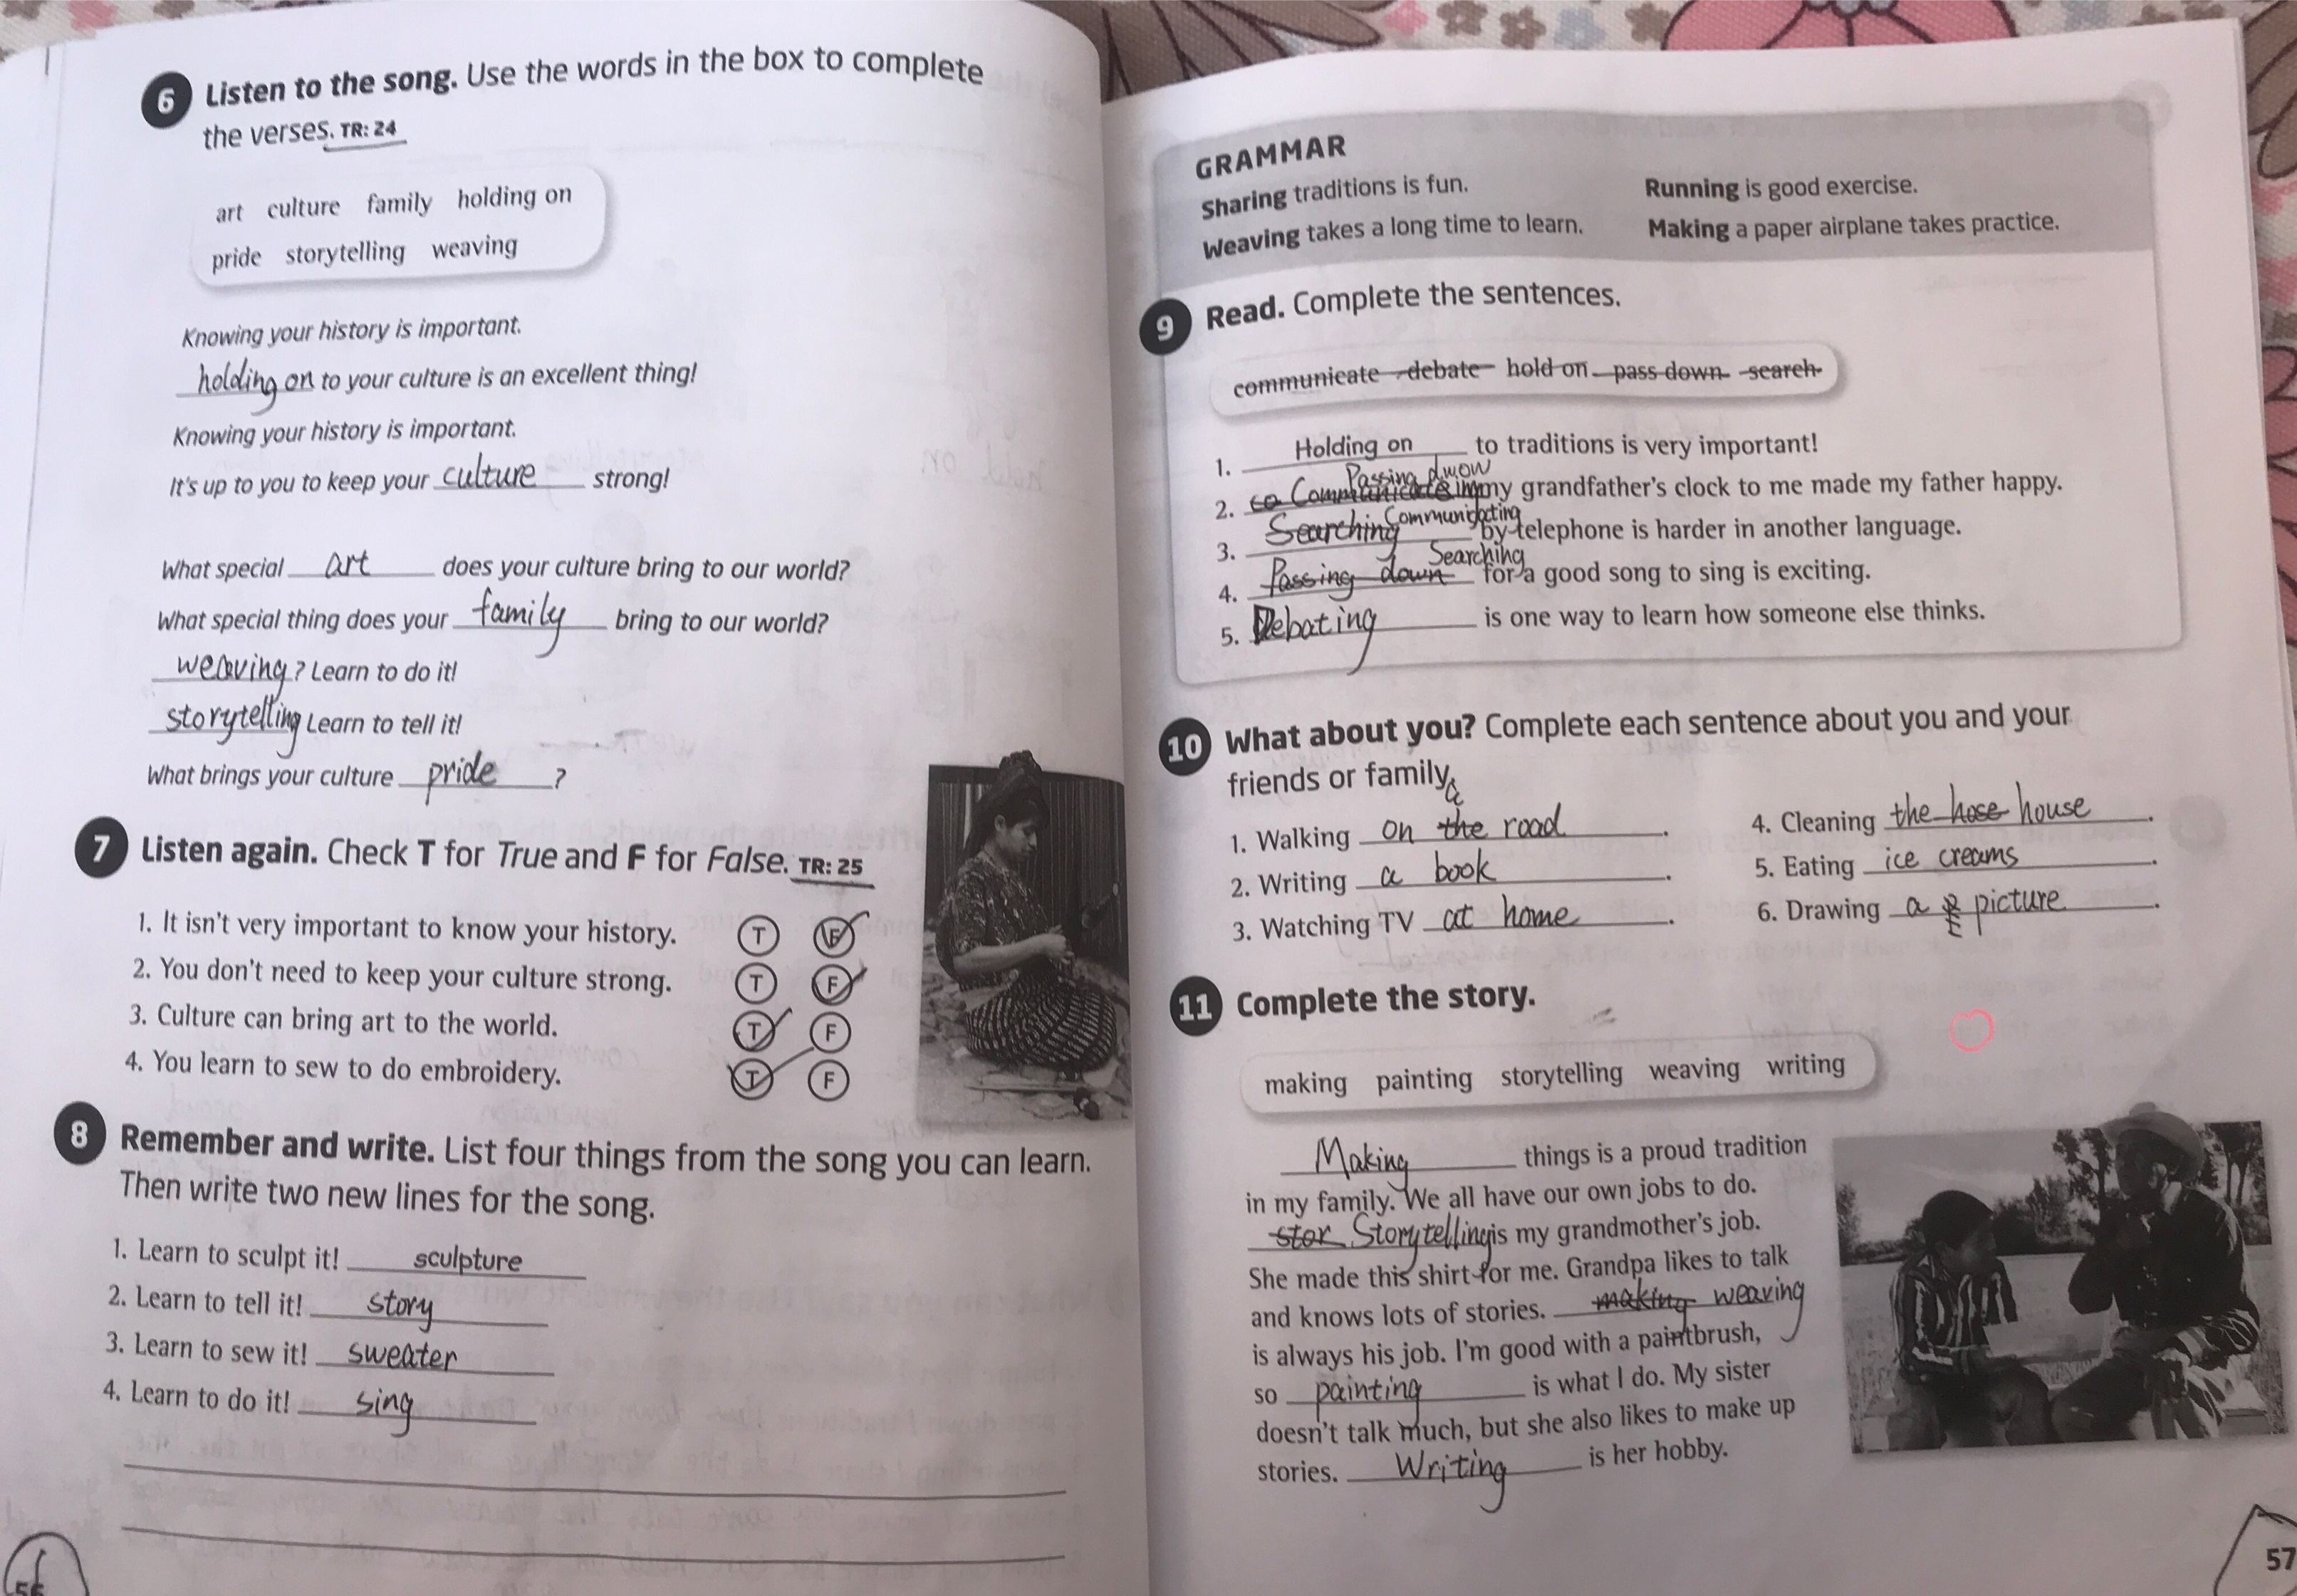 6 Listen to the song. Use the words in the box to complete
the verses. TR: 24
art culture family holding on
pride storytelling weaving
Knowing your history is important.
holding on to your culture is an excellent thing!
Knowing your history is important.
It's up to you to keep your culture strong!
What special art does your culture bring to our world?
What special thing does your family bring to our world?
weaving? Learn to do it!
storytelling Learn to tell it!
What brings your culture pride?
7 Listen again. Check T for True and F for False. TR: 25
1. It isn't very important to know your history. T F
2. You don't need to keep your culture strong. T F
3. Culture can bring art to the world. T F
4. You learn to sew to do embroidery. T F
8 Remember and write. List four things from the song you can learn.
Then write two new lines for the song.
1. Learn to sculpt it! sculpture
2. Learn to tell it! story
3. Learn to sew it! sweater
4. Learn to do it! sing
GRAMMAR
Sharing traditions is fun. Running is good exercise.
Weaving takes a long time to learn. Making a paper airplane takes practice.
9 Read. Complete the sentences.
communicate debate hold on pass down search
1. Holding on to traditions is very important!
Passing dwon
2. co Communicateing my grandfather's clock to me made my father happy.
Communicating
3. Searching by telephone is harder in another language.
Searching
4. Passing down for a good song to sing is exciting.
5. Debating is one way to learn how someone else thinks.
10 What about you? Complete each sentence about you and your
friends or family.
a
1. Walking on the road.
2. Writing a book.
3. Watching TV at home.
4. Cleaning the hose house.
5. Eating ice creams.
6. Drawing a picture.
11 Complete the story.
making painting storytelling weaving writing
Making things is a proud tradition
in my family. We all have our own jobs to do.
stor Storytelling is my grandmother's job.
She made this shirt for me. Grandpa likes to talk
and knows lots of stories. making weaving
is always his job. I'm good with a paintbrush,
so painting is what I do. My sister
doesn't talk much, but she also likes to make up
stories. Writing is her hobby.
56
57